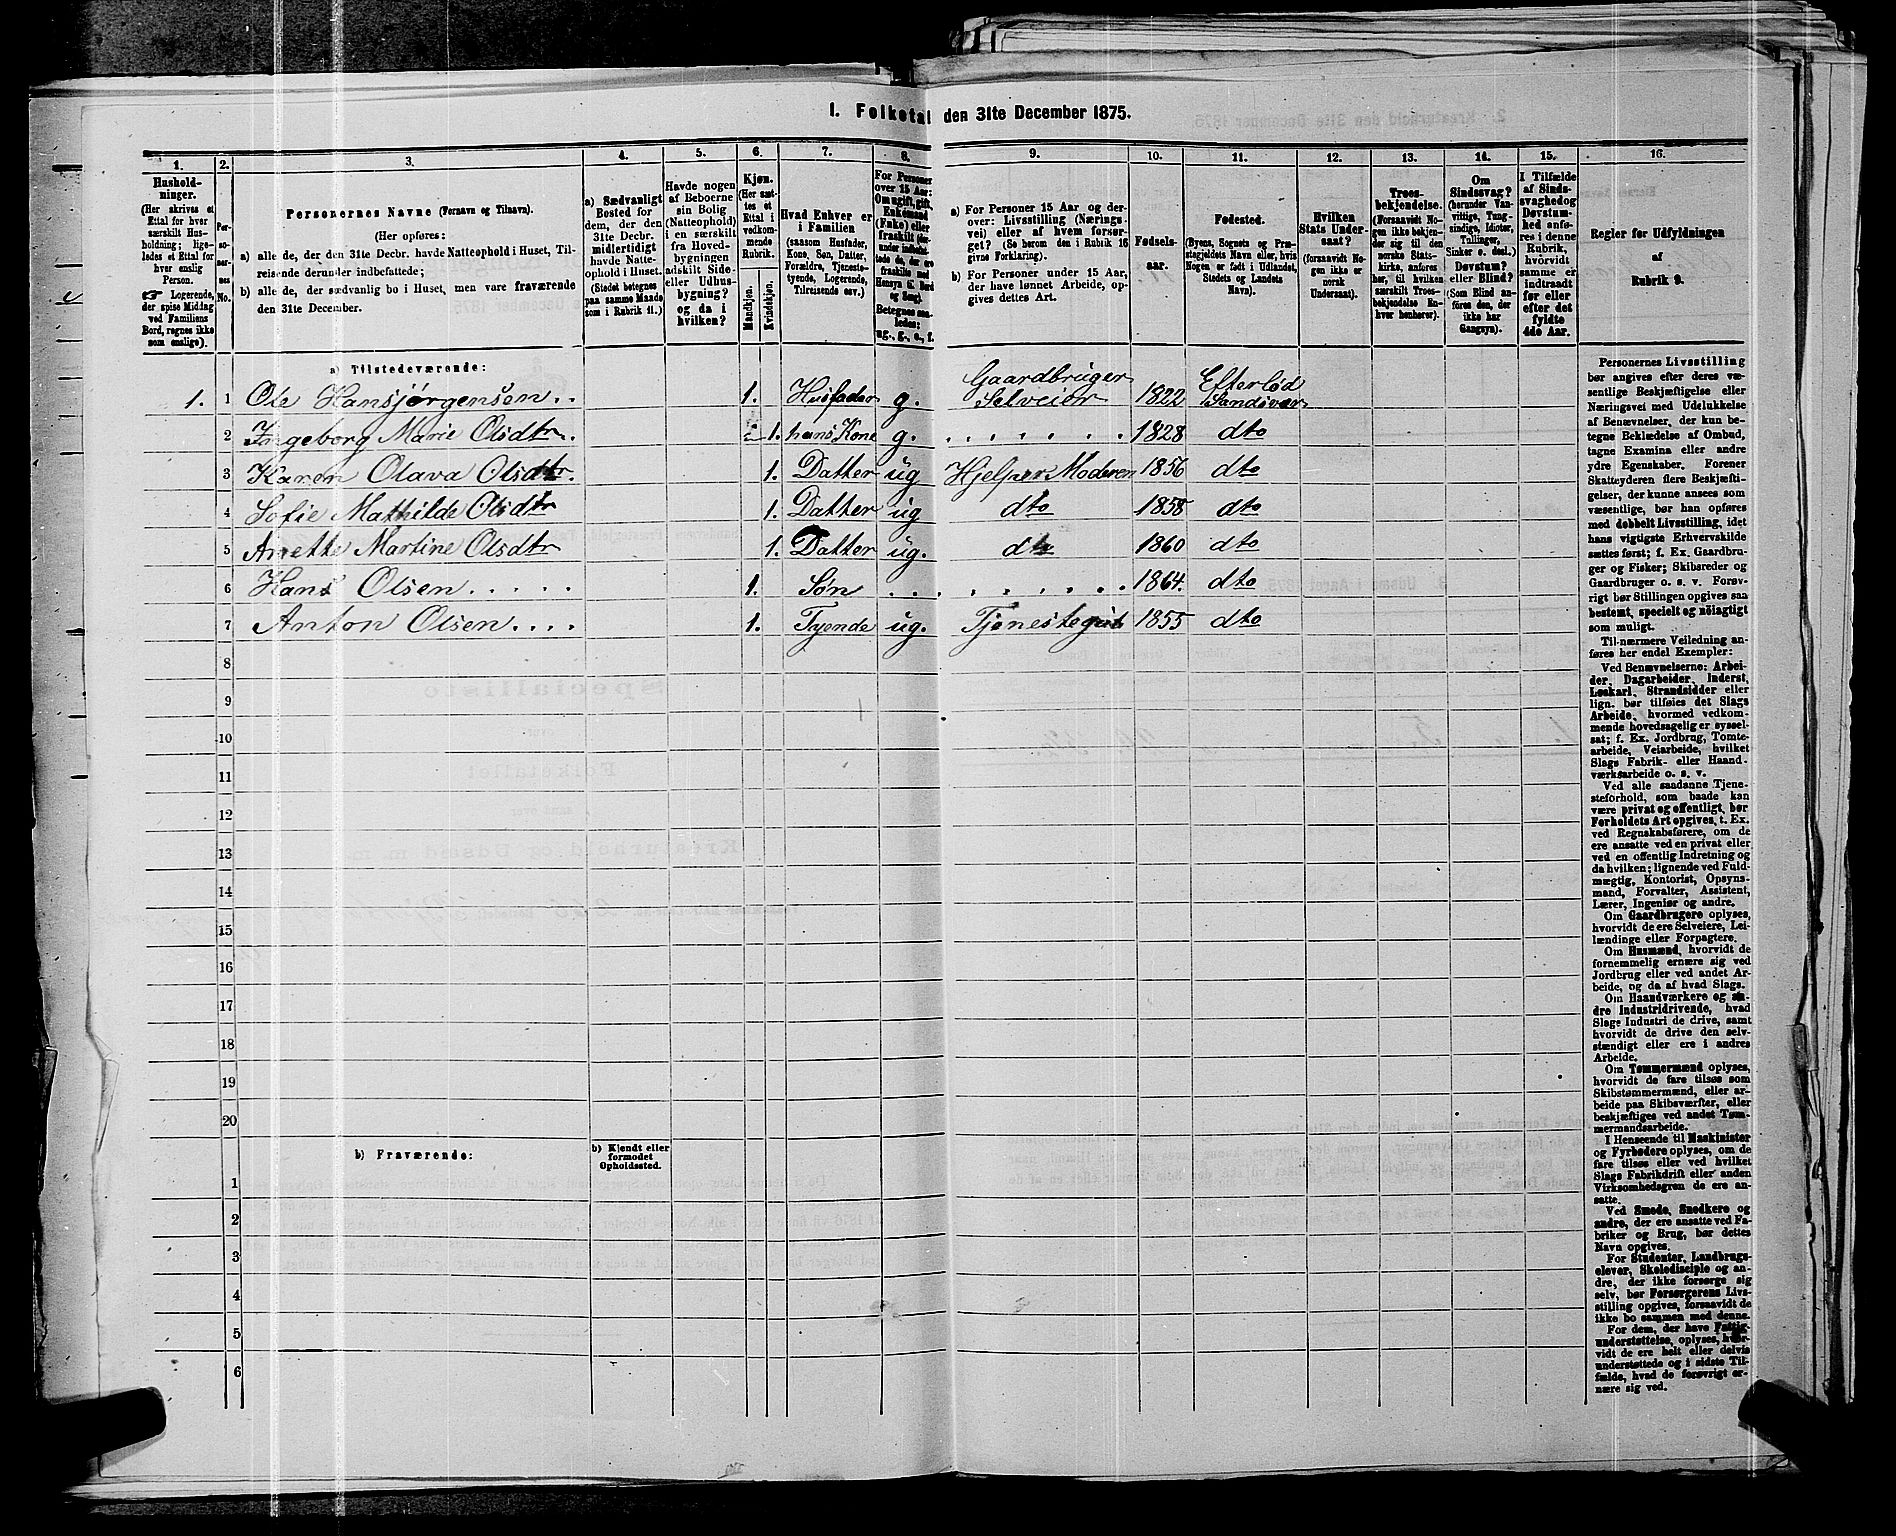 1. Folketal den 31te December 1875.
1. 2. 3. 4. 5. 6. 7. 8. 9. 10. 11. 12. 13. 14. 15. 16.
Hushold-
ninger.
(Her skrives et
Ettal for hver
særskilt Hus-
holdning; lige-
ledes et Ettal for
hver enslig
Person.
☞ Logerende,
der spise Middag
ved Familiens
Bord, regnes ikke
som enslige).
Per-
so-
ner-
nes
No.
Personernes Navne (Fornavn og Tilnavn).
(Her opføres:
a) alle de, der den 31te Decbr. havde Natteophold i Huset, Til-
reisende derunder indbefattede;
b) alle de, der sædvanlig bo i Huset, men vare fraværende
den 31te December.
a) Sædvanligt
Bosted for
dem, der den
31te Decbr.
midlertidigt
havde Natte-
ophold i Huset.
(Stedet betegnes
paa samme Maade
som i Rubrik 11.)
Havde nogen
af Beboerne
sin Bolig
(Natteophold)
i en særskilt
fra Hoved-
bygningen
adskilt Side-
eller Udhus-
bygning?
og da i
hvilken?
Kjøn.
(Her sæt-
tes et
Ettal i
vedkom-
mende
Rubrik.
Mandkjøn.
Kvindekjøn.
Hvad Enhver er
i Familien
(saasom Husfader,
Kone, Søn, Datter,
Forældre, Tjeneste-
tyende, Logerende,
Tilreisende osv.)
For Personer
over 15 Aar:
Om ugift, gift,
Enkemand
(Enke) eller
fraskilt (der-
under indbefat-
tede de, der ere
fraskilte med
Hensyn til Bord
og Seng).
Betegnes saa-
ledes:
ug., g., e., f.
a) For Personer 15 Aar og der-
over: Livsstilling (Nærings-
vei) eller af hvem forsør-
get? (Se herom den i Rubrik 16
givne Forklaring).
b) For Personer under 15 Aar,
der have lønnet Arbeide, op-
gives dettes Art.
Fødsels-
aar.
Fødested.
(Byens, Sognets og Præ-
stegjeldets Navn eller, hvis
Nogen er født i Udlandet,
Stedets og Landets
Navn).
Hvilken
Stats Under-
saat?
(forsaavidt No-
gen ikke er
norsk
Undersaat).
Troes-
bekjendelse.
(Forsaavidt No-
gen ikke bekjen-
der sig til den
norske Stats-
kirke, anføres
her, til hvilken
særskilt Troes-
bekjendelse En-
hver henhører).
Om
Sindssvag?
(herunder Van-
vittige, Tung-
sindige, Idioter,
Tullinger,
Sinker o. desl.)
Døvstum?
eller Blind?
(Som Blind an-
føres den, der
ikke har
Gangsyn).
I Tilfælde
af Sinds-
svaghed og
Døvstum-
hed anfø-
res i denne
Rubrik,
hvorvidt
samme er
indtraadt
før eller
efter det
fyldte
4de Aar.
Regler for Udfyldningen
af
Rubrik 9.
a) Tilstedeværende:
1. 1 Ole Hansjørgensen . . 1. Husfader g. Gaardbruger Selveier 1822 Eftelød Sandsver
2 Ingeborg Marie Olsdtr. 1. hans Kone g. . . . . . . 1828 dto
3 Karen Olava Olsdtr. 1. Datter ug Hjelper Moderen 1856 dto
4 Sofie Mathilde Olsdtr 1. Datter ug dto 1858 dto
5 Anette Martine Olsdtr 1. Datter ug. dto 1860 dto
6 Hans Olsen . . . . . 1. Søn . . . . . . . . 1864. dto
7 Anton Olsen . . . . 1. Tyende ug. Tjenestegut 1855 dto
8
9
10
11
12
13
14
15
16
17
18
19
20
b) Fraværende:
b) Kjendt eller
formodet
Opholdssted.
1
2
3
4
5
6
Personernes Livsstilling
bør angives efter deres væ-
sentlige Beskjæftigelse eller
Næringsvei med Udelukkelse
af Benævnelser, der kun be-
tegne Beklædelse af Ombud,
tagne Examina eller andre
ydre Egenskaber. Forener
Skatteyderen flere Beskjæfti-
gelser, der kunne ansees som
væsentlige, bør han opføres
med dobbelt Livsstilling, idet
hans vigtigste Erhvervskilde
sættes først; f. Ex. Gaardbru-
ger og Fisker; Skibsreder og
Gaardbruger o. s. v. Forøv-
rigt bør Stillingen opgives saa
bestemt, specielt og nøiagtigt
som muligt.
Til nærmere Veiledning an-
føres her endel Exempler:
Ved Benævnelserne: Arbei-
der, Dagarbeider, Inderst,
Løskarl, Strandsidder eller
lign. bør tilføies det Slags
Arbeide, hvormed vedkom-
mende hovedsagelig er syssel-
sat; f. Ex. Jordbrug, Tomte-
arbeide, Veiarbeide, hvilket
Slags Fabrik- eller Haand-
værksarbeide o. s. v.
Ved alle saadanne Tjene-
steforhold, som baade kan
være privat og offentligt, bør
Forholdets Art opgives, t. Ex.
ved Regnskabsførere, om de
ere ansatte ved en privat eller
ved en offentlig Indretning og
da hvilken; lignende ved Fuld-
mægtig, Kontorist, Opsyns-
mand, Forvalter, Assistent,
Lærer, Ingeniør og andre.
Om Gaardbrugere oplyses,
hvorvidt de ere Selveiere, Lei-
lændinge eller Forpagtere.
Om Husmænd, hvorvidt de
fornemmelig ernære sig ved
Jordbrug eller ved andet Ar-
beide, og da af hvad Slags.
Om Haandværkere og an-
dre Industridrivende, hvad
Slags Industri de drive, samt
hvorvidt de drive den selv-
stændigt eller ere i andres
Arbeide.
Om Tømmermænd oplyses,
hvorvidt de fare tilsøs som
Skibstømmermænd, eller ar-
beide paa Skibsværfter, eller
beskjæftiges ved andet Tøm-
mermandsarbeide.
I Henseende til Maskinister
og Fyrbødere oplyses, om de
fare tilsøs eller ved hvilket
Slags Fabrikdrift eller anden
Virksomhedsgren de ere an-
satte.
Ved Smede, Snedkere og
andre, der ere ansatte ved Fa-
briker og Brug, bør dettes
Navn opgives.
For Studenter, Landbrugs-
elever, Skoledisciple og an-
dre, der ikke forsørge sig
selv, bør Forsørgerens Livs-
stilling opgives, forsaavidt de
ikke bo sammen med denne.
For dem, der have Fattig-
understøttelse, oplyses, hvor-
vidt de ere helt eller delvis
understøttede og i sidste Til-
fælde, hvad de forøvrigt er-
nære sig ved.